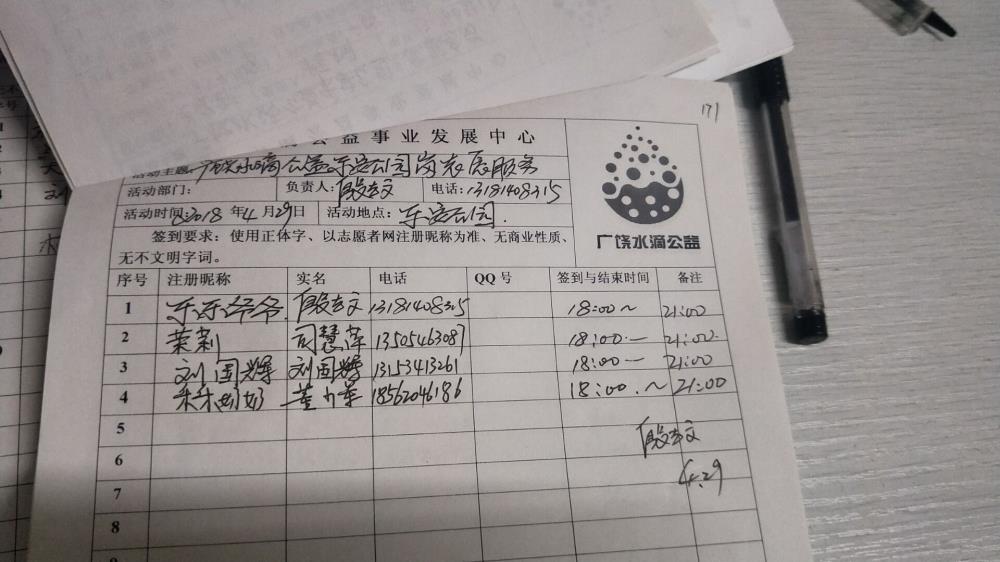 171
公益事业发展中心
活动主题:广饶水滴公益乐安公园岗志愿服务
活动部门: 负责人:殷志文 电话:13181408315
活动时间:2018年4月29日 活动地点:乐安公园.
签到要求:使用正体字、以志愿者网注册昵称为准、无商业性质、
无不文明字词。
广饶水滴公益
序号 注册昵称 实名 电话 QQ号 签到与结束时间 备注
1 乐乐爷爷 殷志文 13181408315 18:00~ 21:00
2 茉莉 司慧萍 13505463087 18:00— 21:00
3 刘国辉 刘国辉 13153413261 18:00— 21:00
4 朵朵奶奶 18562046186 18:00.~21:00
5 殷志文
6
7 4.29
8